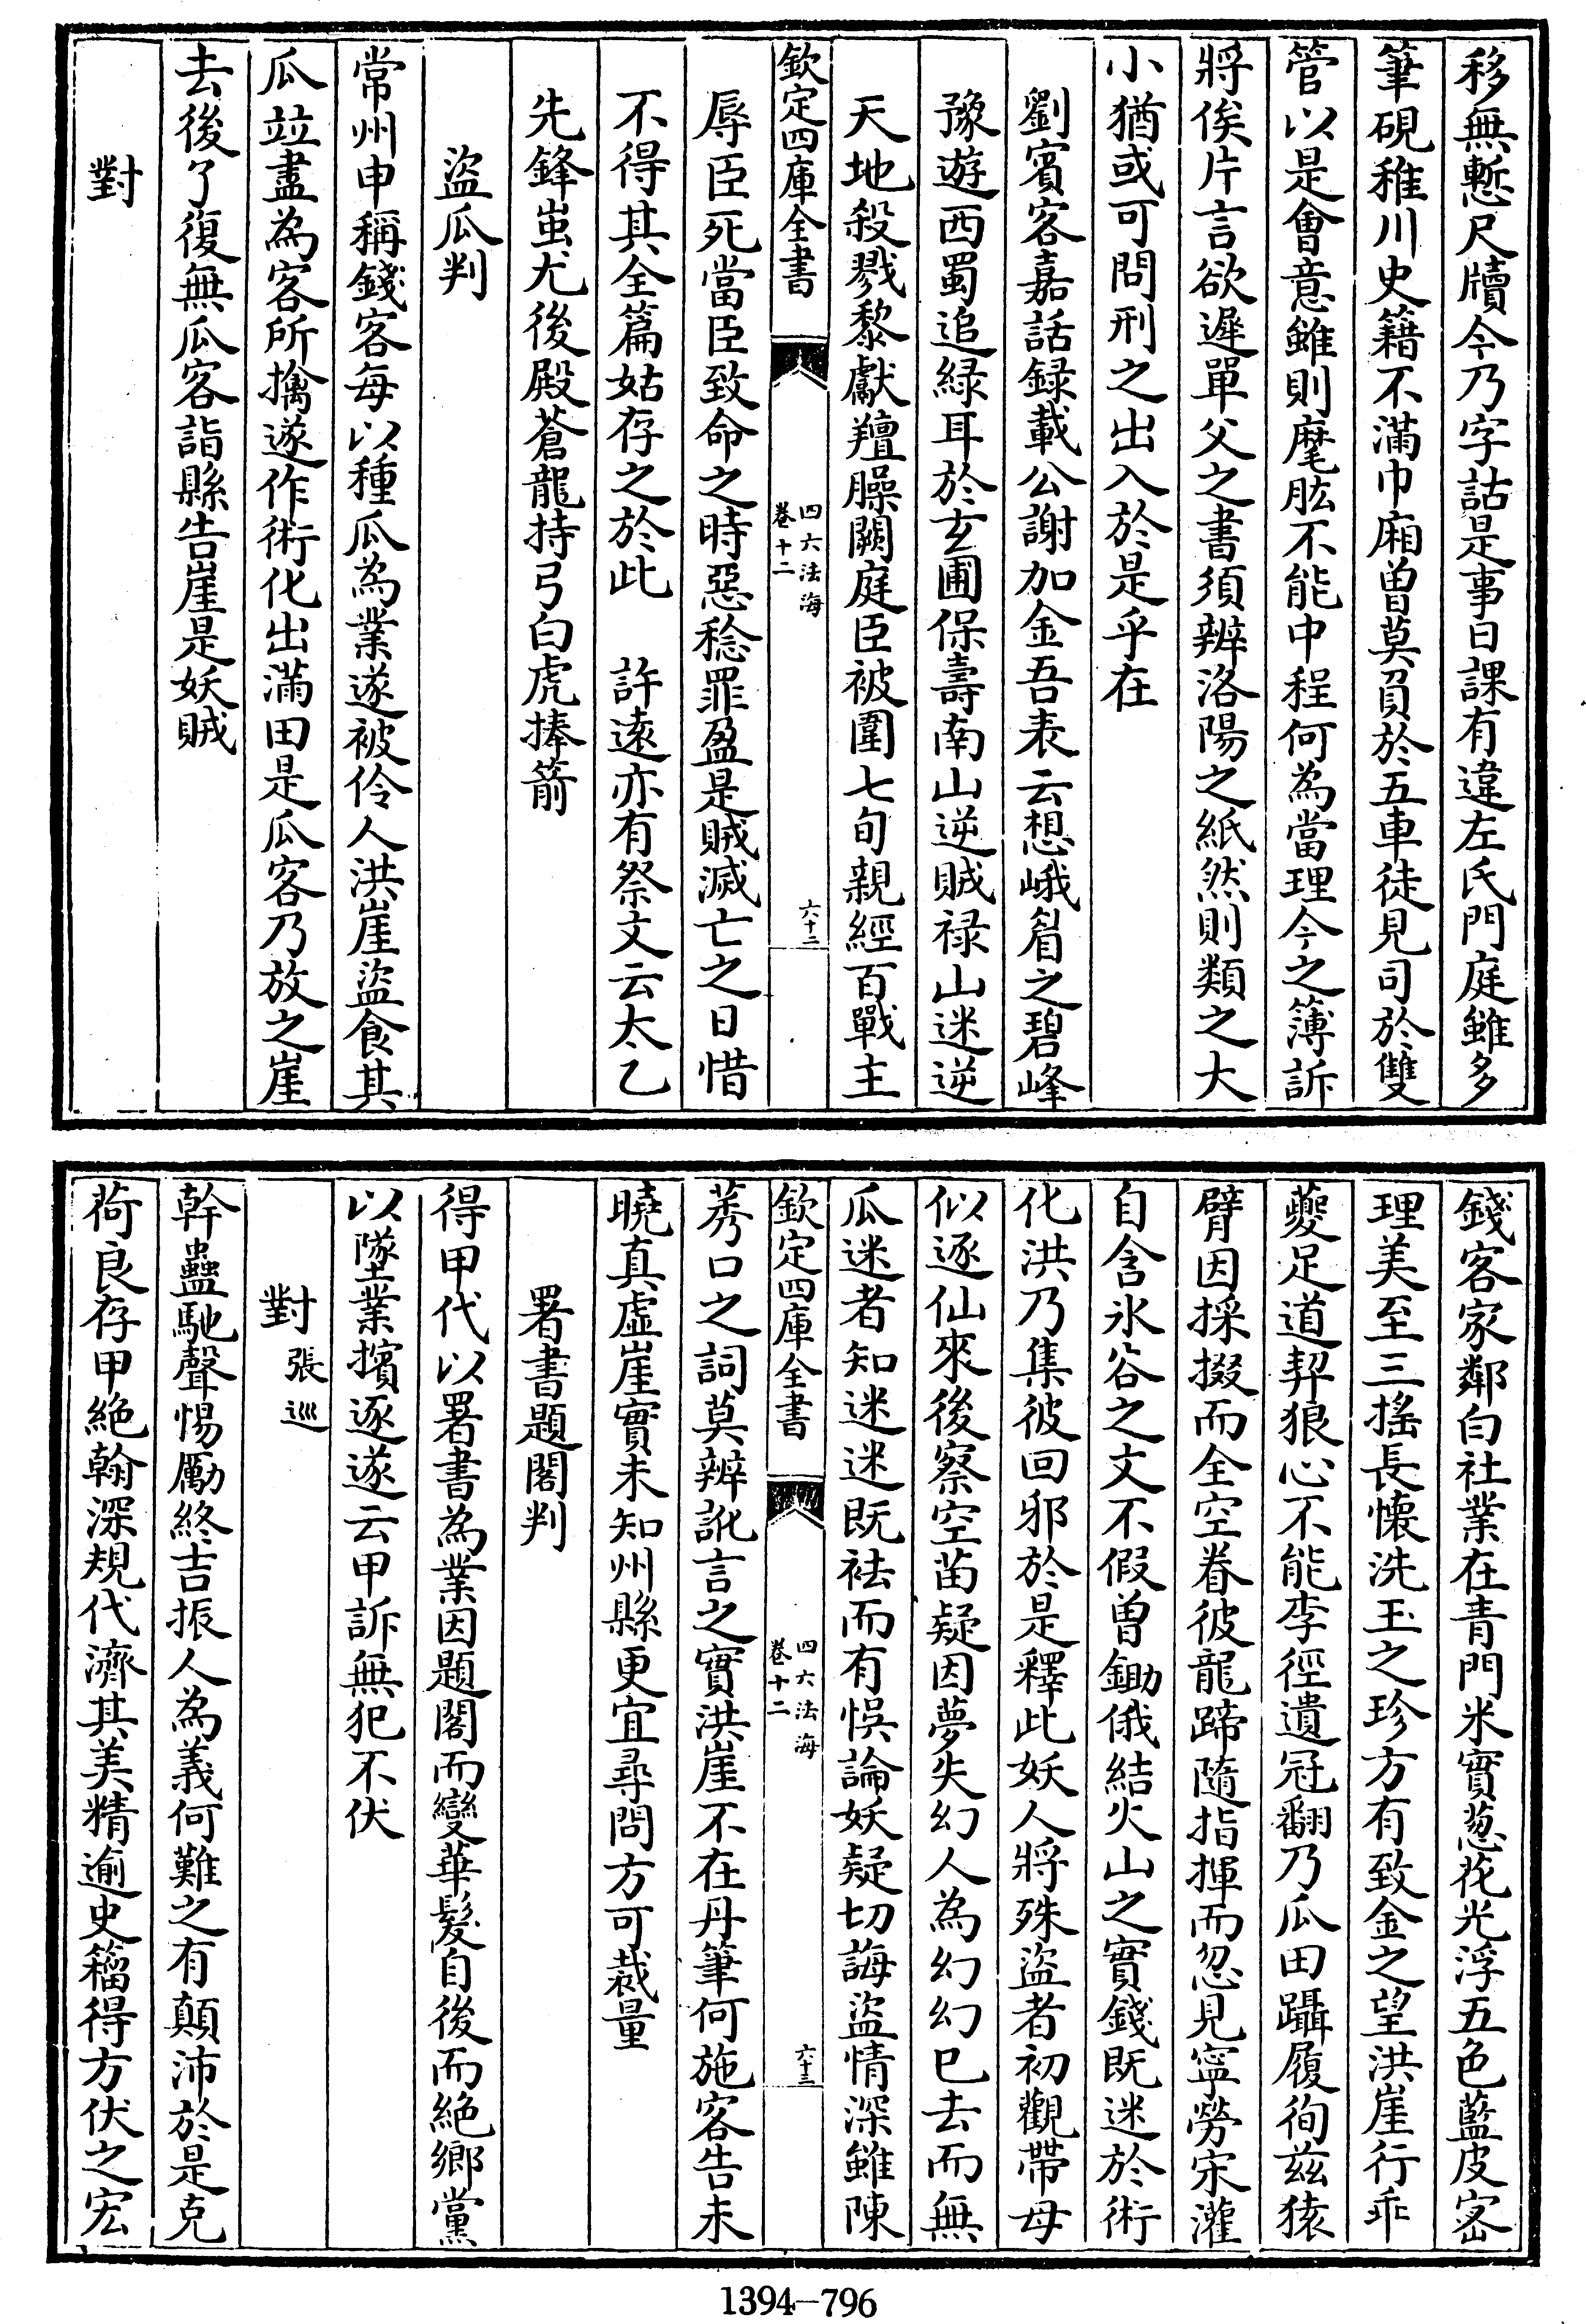 移無慙尺牘今乃字詁是事日課有違左氏門庭雖多
筆硯稚川史籍不滿巾廂曽莫負於五車徒見司於雙
管以是會意雖則麾肱不能中程何為當理今之簿訴
將俟片言欲遲單父之書須辨洛陽之紙然則類之大
小猶或可問刑之出入於是乎在
劉賓客嘉話録載公謝加金吾表云想峨眉之碧峰
豫遊西蜀追緑耳於玄圃保壽南山逆賊禄山迷逆
天地殺戮黎獻羶臊闕庭臣被圍七旬親經百戰主
欽定四庫全書
四六法海
卷十二
六十二
辱臣死當臣致命之時惡稔罪盈是賊滅亡之日惜
不得其全篇姑存之於此 許遠亦有祭文云太乙
先鋒蚩尤後殿蒼龍持弓白虎捧箭
盜瓜判
常州申稱錢客每以種瓜為業遂被伶人洪崖盜食其
瓜竝盡為客所擒遂作術化出滿田是瓜客乃放之崖
去後了復無瓜客詣縣告崖是妖賊
對
錢客家鄰白社業在青門米實葱花光浮五色藍皮宻
理美至三搖長懷洗玉之珍方有致金之望洪崖行乖
蘷足道契狼心不能李徑遺冠翻乃瓜田躡履徇兹猿
臂因採掇而全空眷彼龍蹄隨指揮而忽見寜勞宋灌
自含氷谷之文不假曽鋤俄結火山之實錢既迷於術
化洪乃集彼回邪於是釋此妖人將殊盜者初觀帶母
似逐仙來後察空苗疑因夢失幻人為幻幻巳去而無
瓜迷者知迷迷既祛而有悞論妖疑切誨盜情深雖陳
欽定四庫全書
四六法海
卷十二
六十三
莠口之詞莫辨訛言之實洪崖不在丹筆何施客告未
曉真虚崖實未知州縣更宜尋問方可裁量
署書題閣判
得甲代以署書為業因題閣而變華髮自後而絶鄉黨
以墜業擯逐遂云甲訴無犯不伏
對 張巡
幹蠱馳聲惕勵終吉振人為義何難之有顛沛於是克
荷良存甲絶翰深規代濟其美精逾史籀得方伏之宏
1394—796